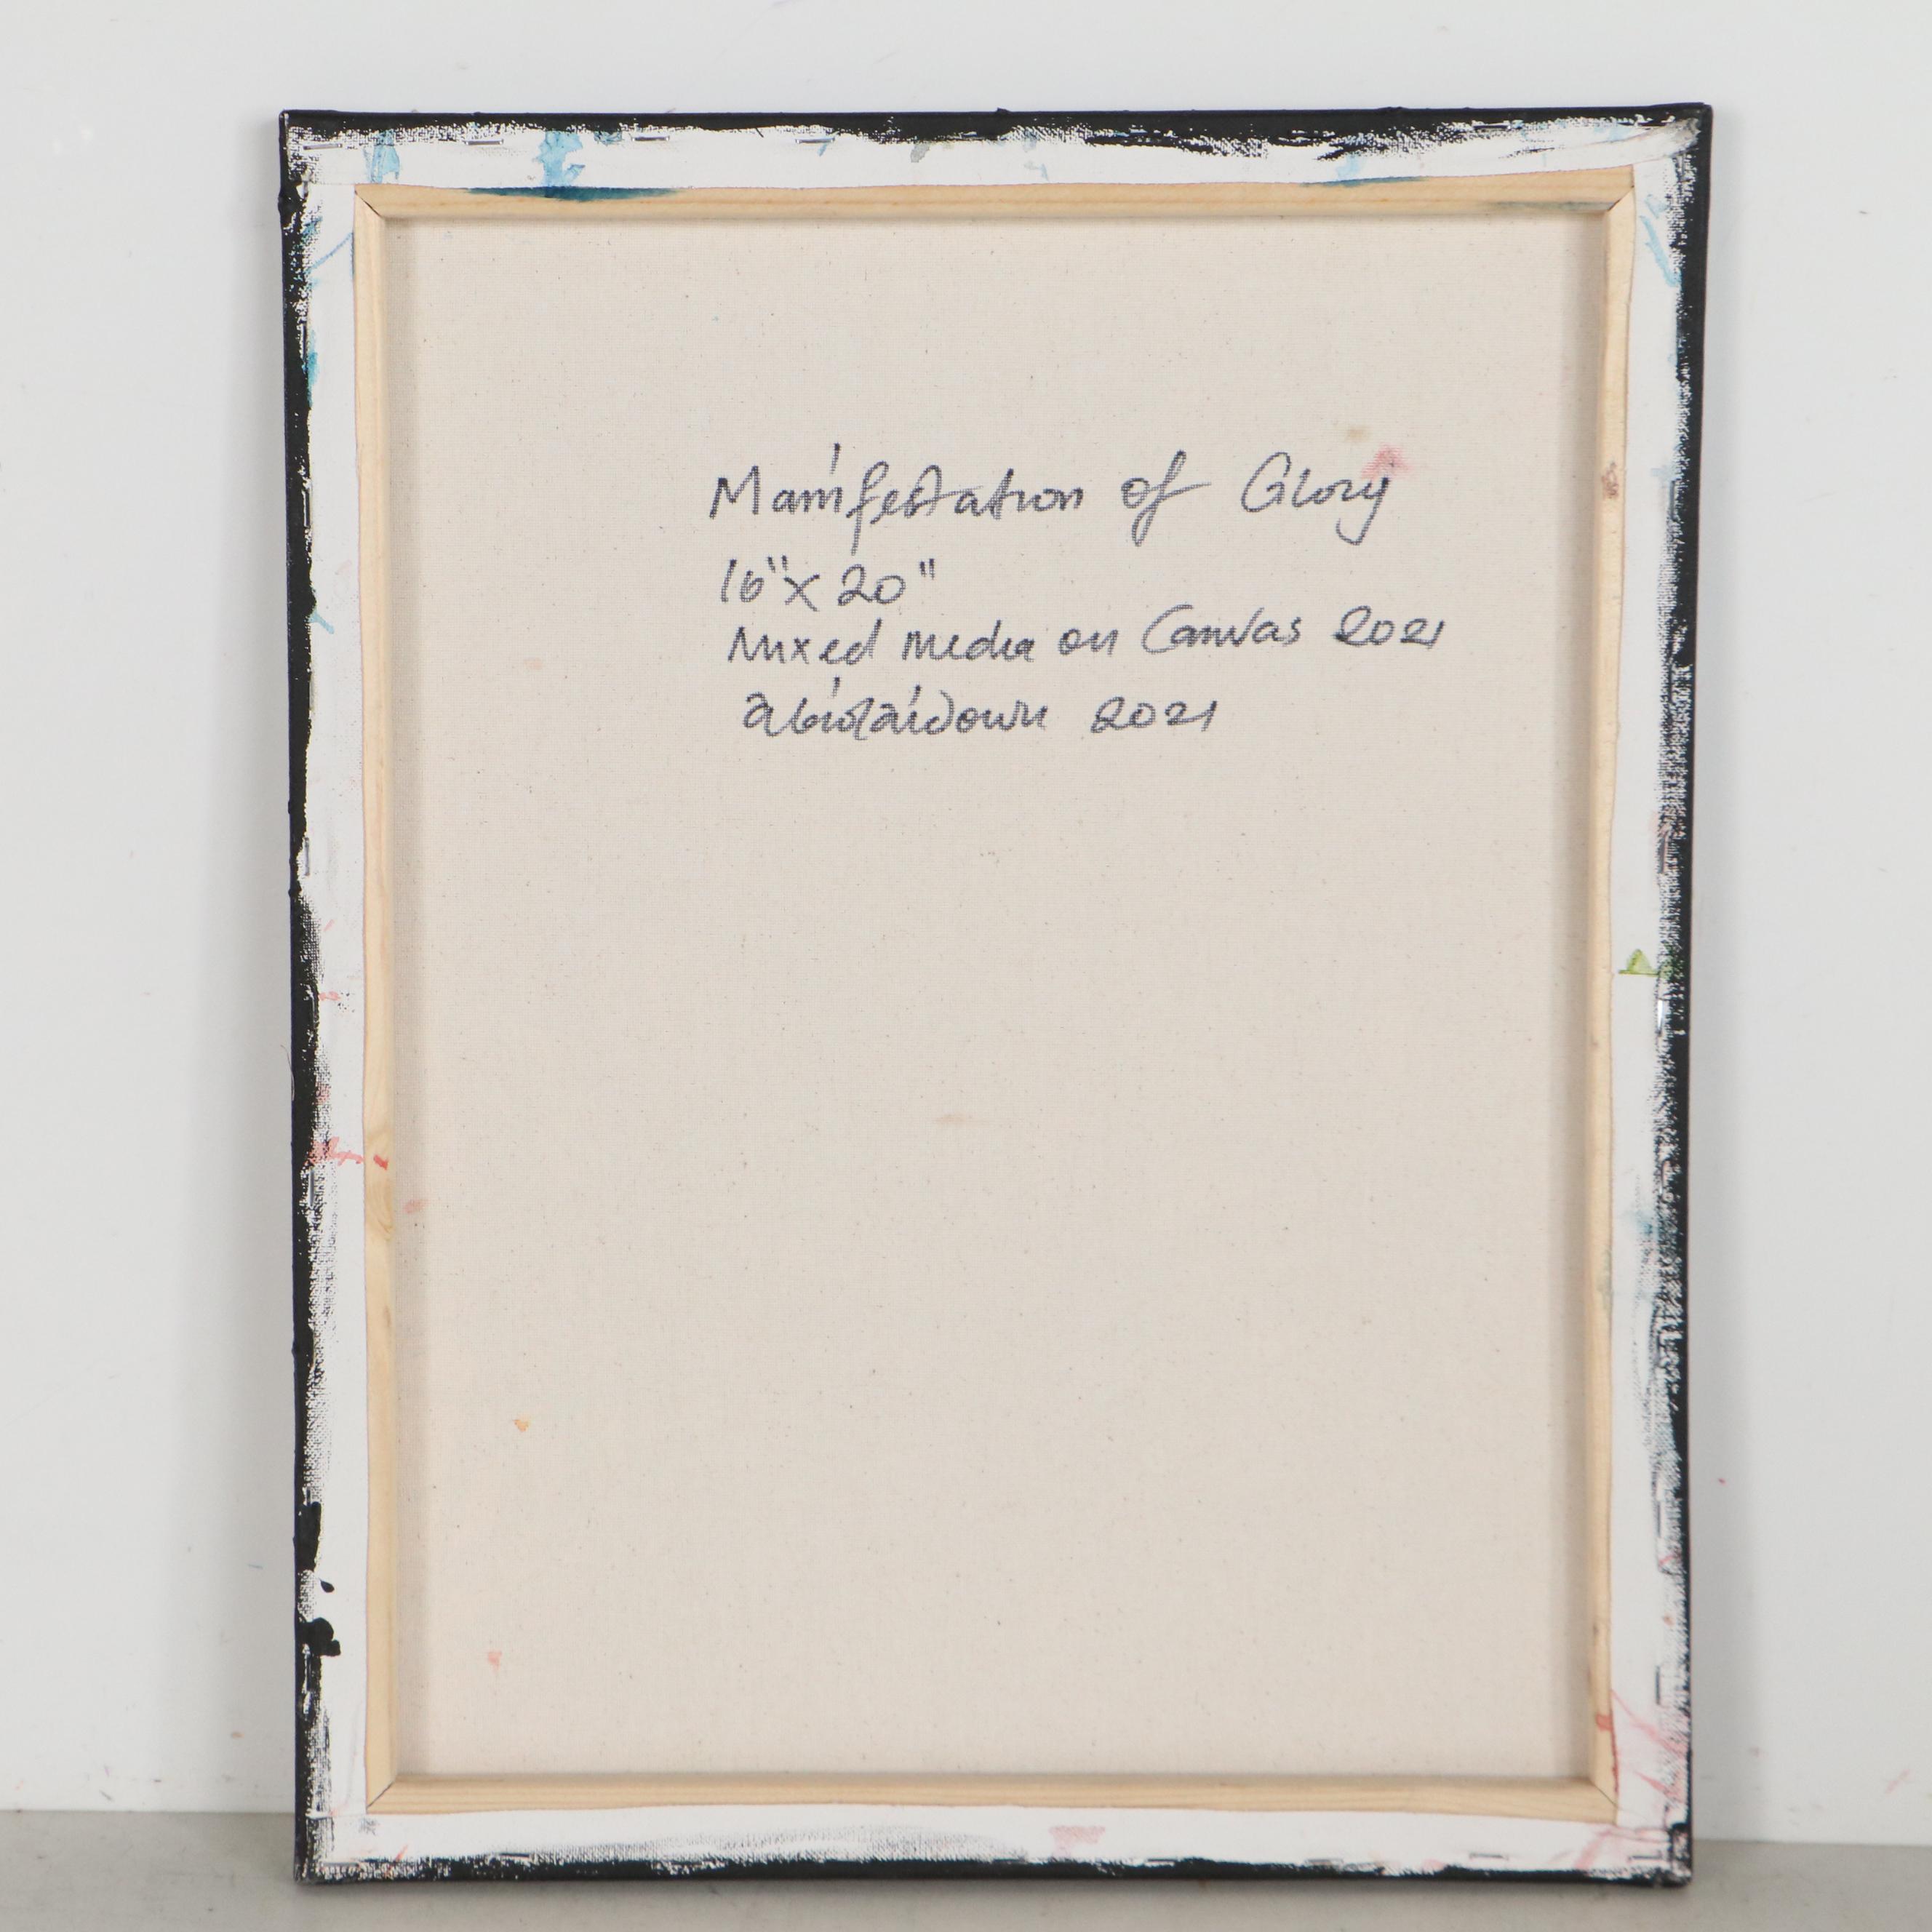 Manifestation of Glory
16"x20"
Mixed media on Canvas 2021
2021